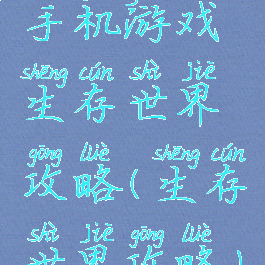 手机游戏
shēng cún shì jiè
生存世界
gōng lüè shēng cún
攻略(生存
shì jiè gōng lüè
世界攻略)